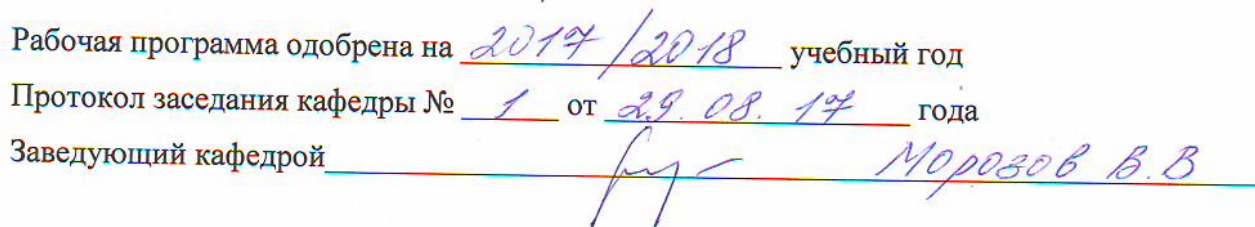 Рабочая программа одобрена на 2017/2018 учебный год
Протокол заседания кафедры № 1 от 29.08.17 года
Заведующий кафедрой Морозов В.В